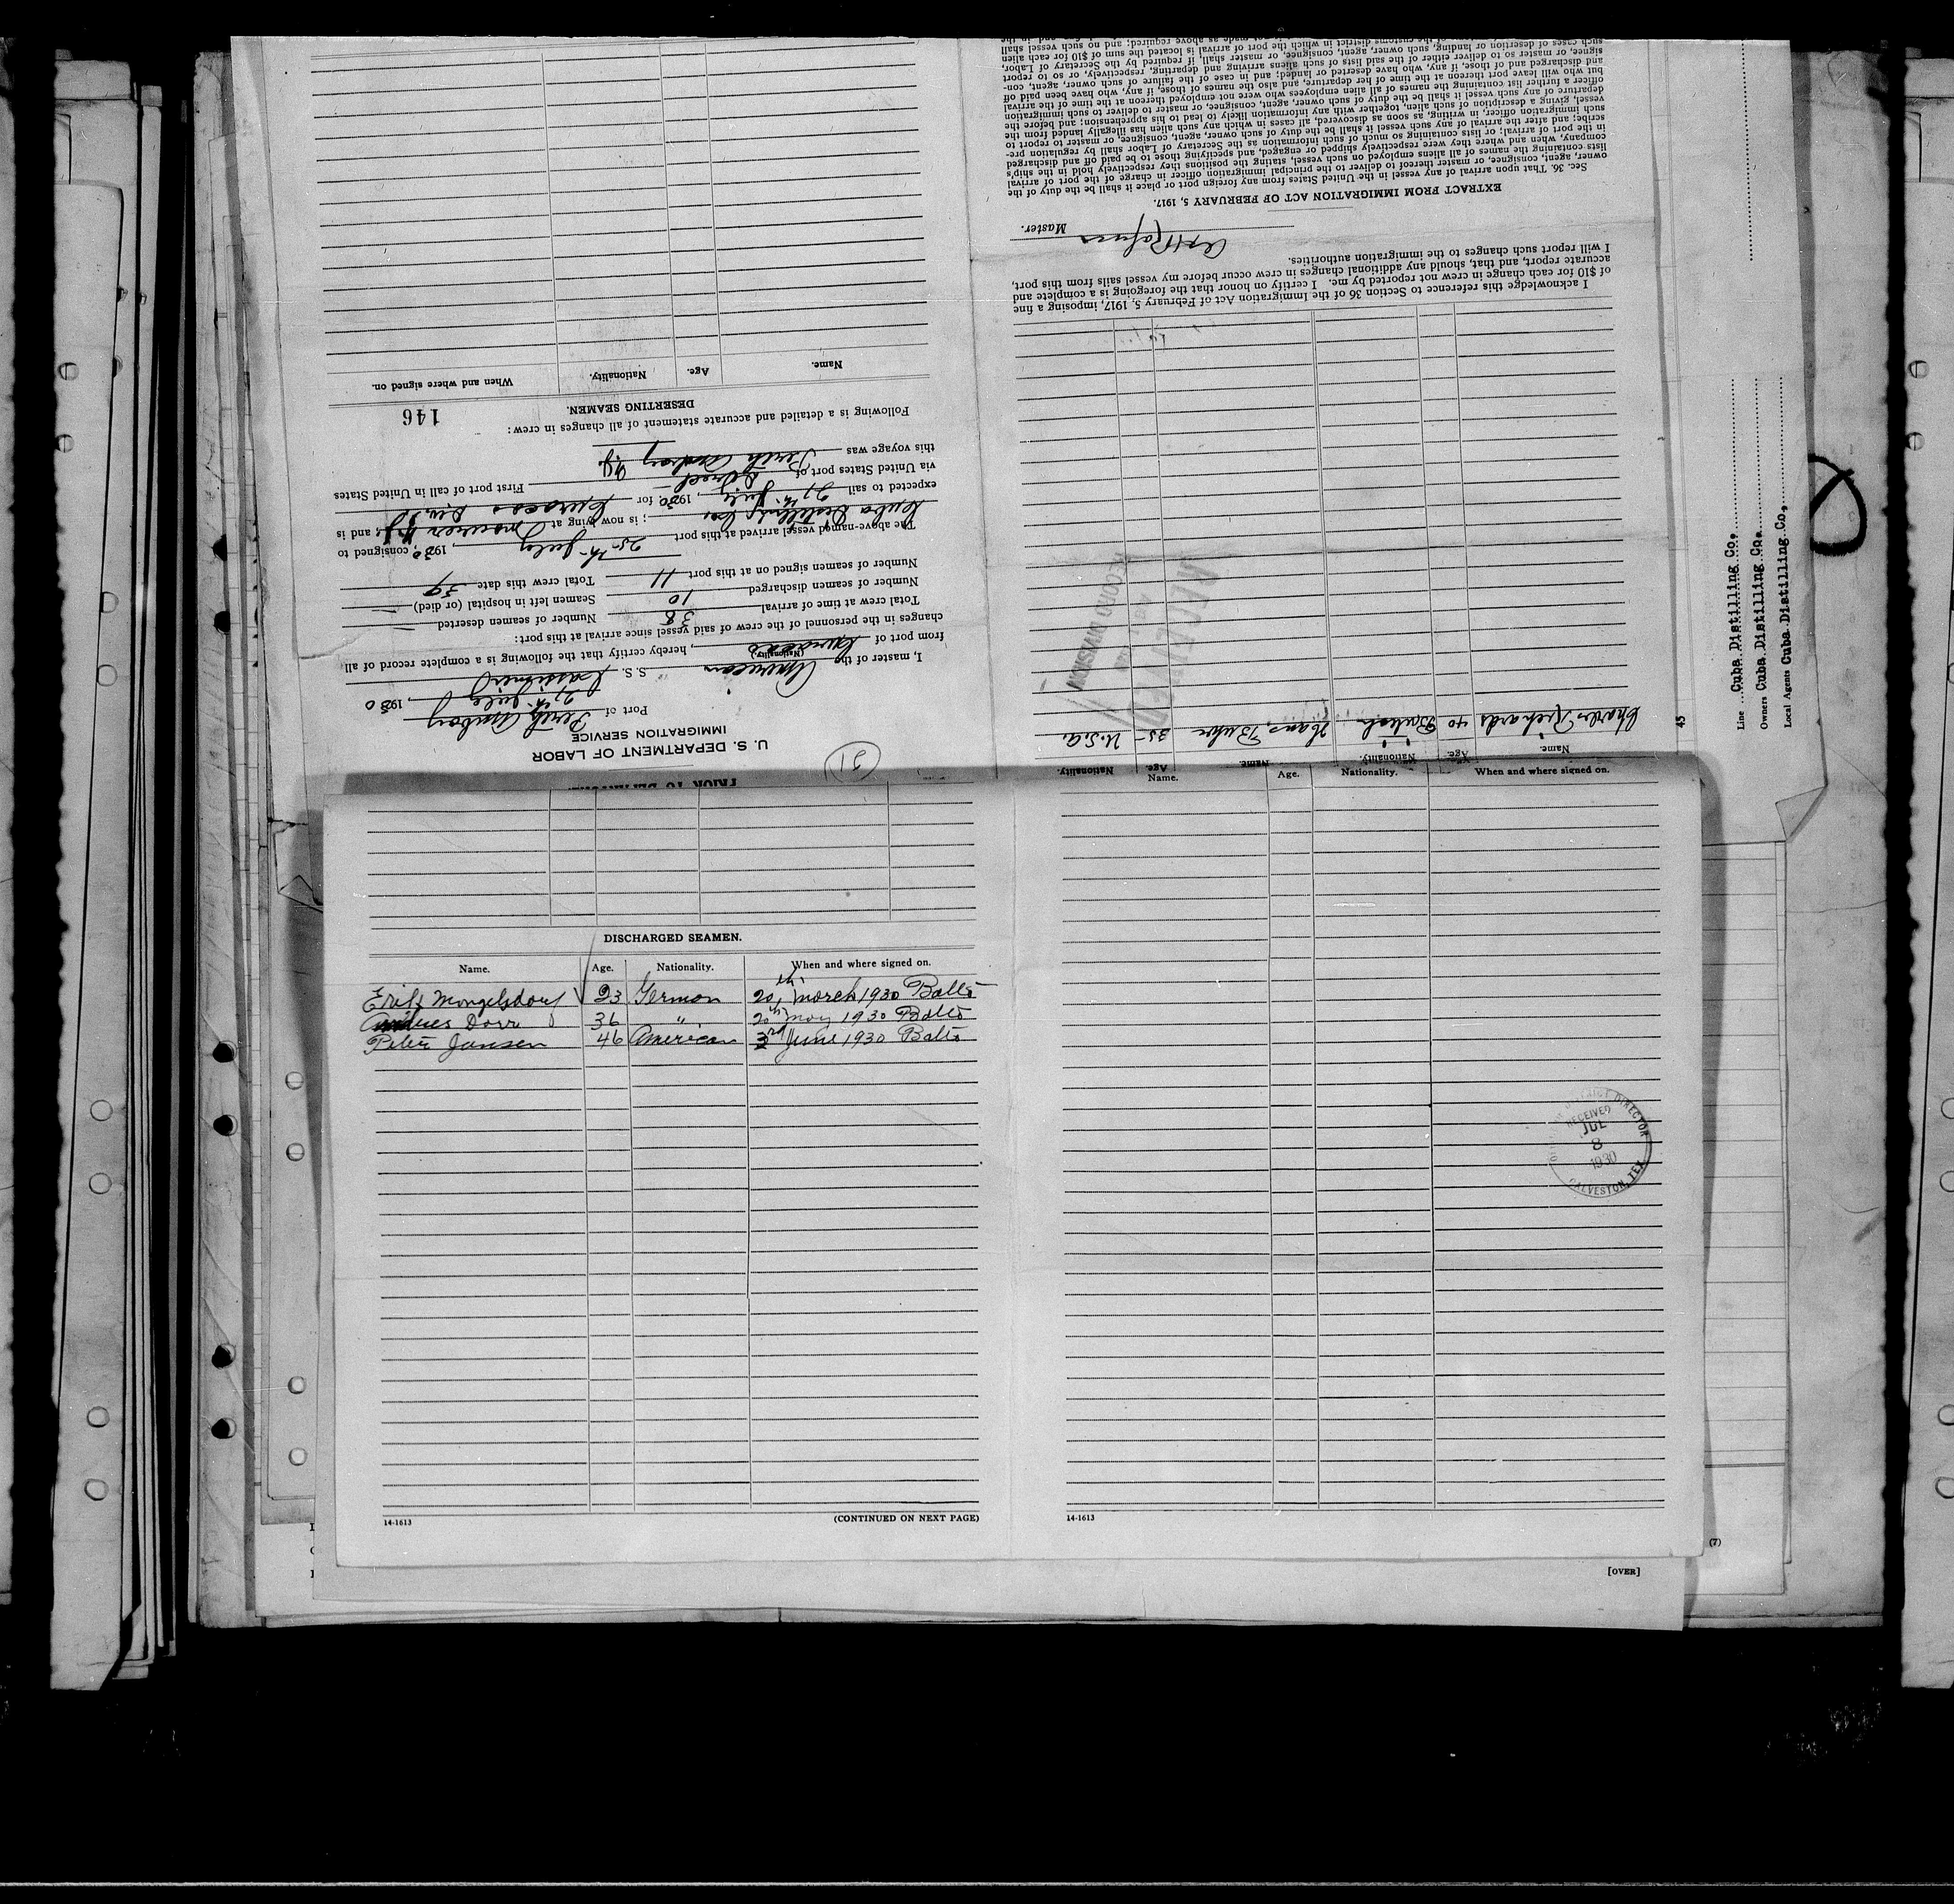 PRIOR TO DEPARTURE
U. S. DEPARTMENT OF LABOR
IMMIGRATION SERVICE
21
Port of Perth Amboy
27th July, 1930
I, master of the American S. S. Cassimir
(Nationality)
from port of Curacao, hereby certify that the following is a complete record of all
changes in the personnel of the crew of said vessel since arrival at this port:
Total crew at time of arrival 38 Number of seamen deserted —
Number of seamen discharged 10 Seamen left in hospital (or died) —
Number of seamen signed on at this port 11 Total crew this date 39
The above-named vessel arrived at this port 25th July, 1930, consigned to
Cuba Distilling Co.; is now lying at and is
expected to sail 27th July, 1930 for Curacao
via United States port of Direct First port of call in United States
this voyage was Perth Amboy N.J.
Following is a detailed and accurate statement of all changes in crew:
DESERTING SEAMEN.
146
Name. Age. Nationality. When and where signed on.
Name. Age. Nationality. Name. Age. Nationality.
Charles Richards 40 British Hans Buhr 35 U.S.A.
RECEIVED
RECORD
I acknowledge this reference to Section 36 of the Immigration Act of February 5, 1917, imposing a fine
of $10 for each change in crew not reported by me. I certify on honor that the foregoing is a complete and
accurate report, and that, should any additional changes in crew occur before my vessel sails from this port,
I will report such changes to the immigration authorities.
Master.
EXTRACT FROM IMMIGRATION ACT OF FEBRUARY 5, 1917.
Sec. 36. That upon arrival of any vessel in the United States from any foreign port or place it shall be the duty of the
owner, agent, consignee, or master thereof to deliver to the principal immigration officer in charge of the port of arrival
lists containing the names of all aliens employed on such vessel, stating the positions they respectively hold in the ship's
company, when and where they were respectively shipped or engaged, and specifying those to be paid off and discharged
in the port of arrival; or lists containing so much of such information as the Secretary of Labor shall by regulation pre-
scribe; and after the arrival of any such vessel it shall be the duty of such owner, agent, consignee, or master to report to
such immigration officer, in writing, as soon as discovered, all cases in which any such alien has illegally landed from the
vessel, giving a description of such alien, together with any information likely to lead to his apprehension; and before the
departure of any such vessel it shall be the duty of such owner, agent, consignee, or master to deliver to such immigration
officer a further list containing the names of all alien employees who were not employed thereon at the time of the arrival
but who will leave port thereon at the time of her departure, and also the names of those, if any, who have been paid off
and discharged and of those, if any, who have deserted or landed; and in case of the failure of such owner, agent, con-
signee, or master so to deliver either of the said lists of such aliens arriving and departing, respectively, or so to report
such cases of desertion or landing, such owner, agent, consignee, or master shall, if required by the Secretary of Labor,
pay to the collector of customs of the customs district in which the port of arrival is located the sum of $10 for each alien
45
Line Cuba Distilling Co.
Owners Cuba Distilling Co.
Local Agents Cuba Distilling Co.
Name. Age. Nationality. When and where signed on.
DISCHARGED SEAMEN.
Name. Age. Nationality. When and where signed on.
Erik Mongelsdorf 23 German 20th March 1930 Balto
Dorr 36 " 20th May 1930 Balto
Peter Jansen 46 American 3rd June 1930 Balto
DISTRICT DIRECTOR
RECEIVED
JUL
8
1930
GALVESTON, TEX.
14-1613 (CONTINUED ON NEXT PAGE)
14-1613
(7)
[OVER]